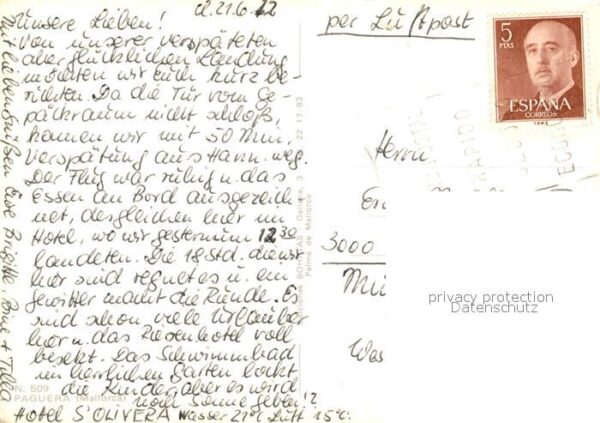 d. 21.6.72
Unsere Lieben!
Von unserer verspäteten
aber glücklichen Landung
möchten wir euch kurz be-
richten. Da die Tür vom Ge-
päckraum nicht schloß,
kamen wir mit 50 Min.
Verspätung aus Hann. weg.
Der Flug war ruhig u. das
Essen an Bord ausgezeich
net, desgleichen hier im
Hotel, wo wir gestern um 12 30
landeten. Die 18 Std. die wir
hier sind regnet es u. ein
Gewitter macht die Runde. Es
sind schon viele Urlauber
hier u. das Riesenhotel voll
besetzt. Das Schwimmbad
im herrlichen Garten lockt
die Kinder, aber es wird
noch Sonne geben!?
HOTEL S'OLIVERA Wasser 21°C Luft 15°C
mit lieben Grüßen Eure Brigitte, + Tilla
N. 509
PAGUERA (Mallorca)
Palma de Mallorca
22 17 83
per Luftpost
5
PTAS
ESPAÑA
CORREOS
Herrn
3000
privacy protection
Datenschutz